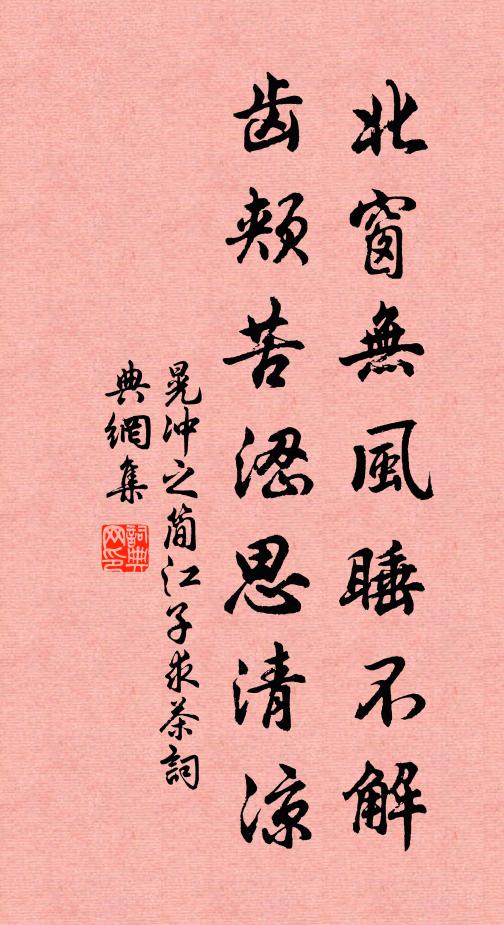 北窗無風睡不解
齿頰苦澀思清涼
晁冲之简江子求茶詞
典網集
詞典
网印